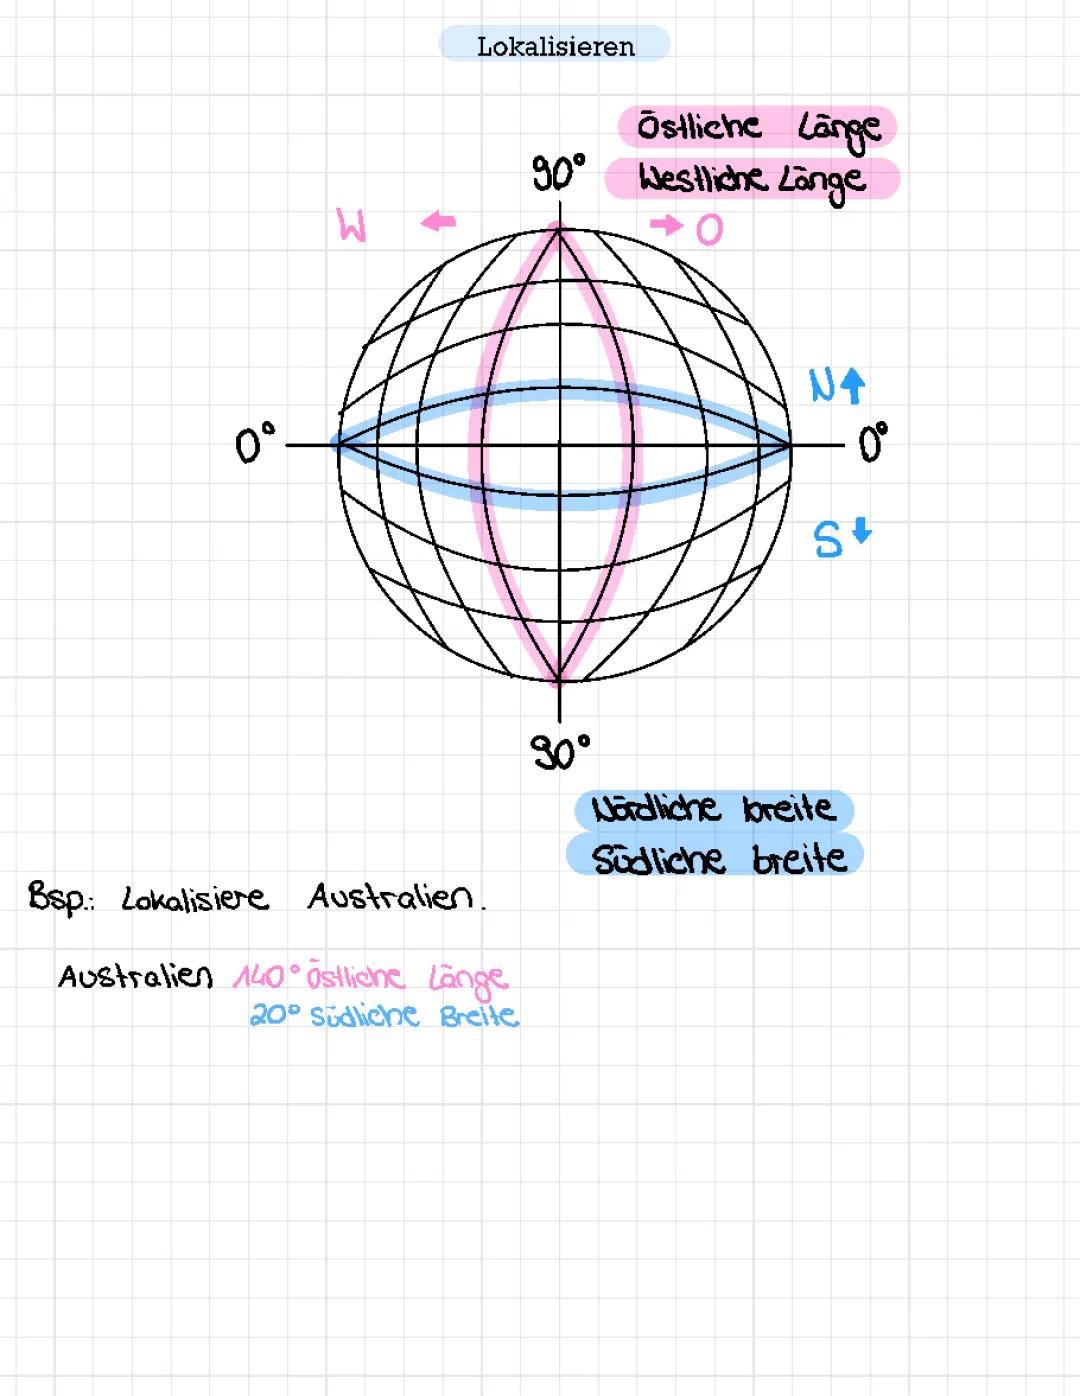 Lokalisieren
Östliche Länge
Westliche Länge
90°
W
O
N
0°
0°
S
90°
Nördliche breite
Südliche breite
Bsp.: Lokalisiere Australien.
Australien 140° östliche Länge
20° südliche Breite